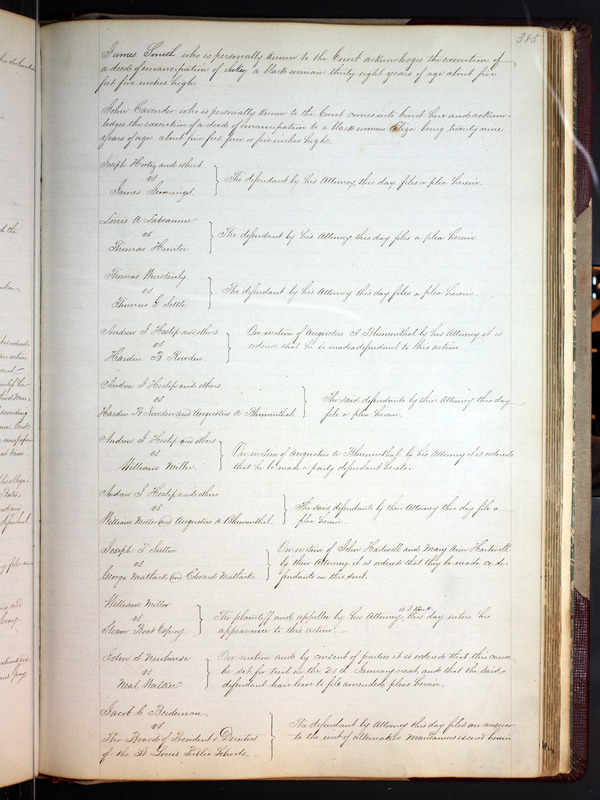 385
James Smith who is personally known to the Court acknowledges the execution of
a deed of emancipation of a black woman thirty eight years of age about five
feet five inches high.
John Cavender who is personally known to the Court comes into Court here and acknow-
ledges the execution of a deed of emancipation to a black woman Eliza being twenty nine
years of age about five feet four or five inches high.
Joseph and others
vs
James Jennings
The defendant by his Attorney this day files a plea herein.
Louis A Labeaume
vs
Thomas Hunter
The defendant by his Attorney this day files a plea herein.
Thomas
vs
Thomas G Settle
The defendant by his Attorney this day files a plea herein.
Andrew J Heslip and others
vs
Hardin B Rowden
On motion of Augustus A Blumenthal by his Attorney it is
ordered that he be made a defendant to this action.
Andrew J Heslip and others
vs
Hardin B Rowden and Augustus A Blumenthal
The said defendants by their Attorney this day
file a plea herein.
Andrew J Heslip and others
vs
William Miller.
On motion of Augustus A Blumenthal by his Attorney it is ordered
that he be made a party defendant hereto.
Andrew J Heslip and others
vs
William Miller and Augustus A Blumenthal.
The said defendants by their Attorney this day file a
plea herein.
Joseph T Sutton
vs
George Mattack and Edward Mattack
On motion of John Hartwell and Mary Ann Hartwell
by their Attorney it is ordered that they be made co de-
fendants in this suit.
William Miller
vs
Steam Boat Osprey
The plaintiff and appellee by his Attorney this day enters his
appearance to this action.
John S
vs
Neal Walker
On motion and by consent of parties it is ordered that this cause
be set for trial on the 24th January next, and that the said
defendant have leave to file amended pleas herein.
Jacob C Beideman
vs
The Board of President & Directors
of the St Louis Public Schools.
The defendant by Attorney this day files an answer
to the writ of alternative Mandamus issued herein